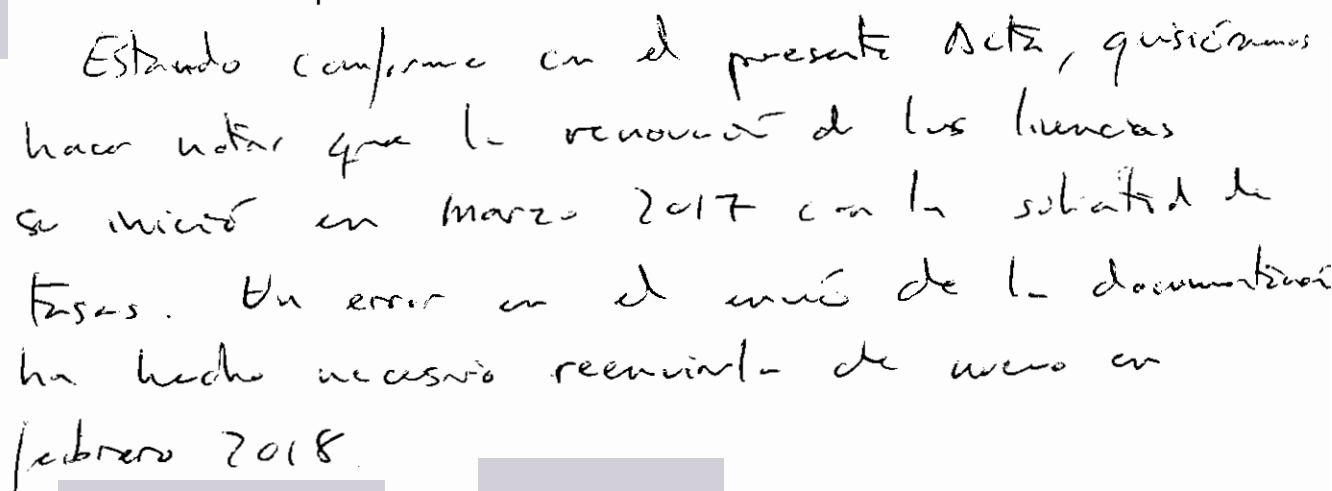 Estando conforme con el presente Acta, quisiéramos
hacer notar que la renovación de las licencias
se inició en marzo 2017 con la solicitud de
tasas. Un error en el envío de la documentación
ha hecho necesario reenviarla de nuevo en
febrero 2018